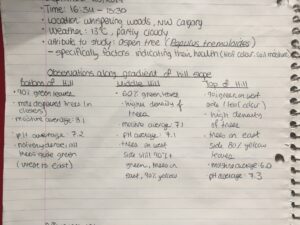 • Time: 16:34 - 18:30
• Location: whispering woods, NW Calgary
• Weather: 13°C, partly cloudy
• attribute to study: aspen tree (Populus tremuloides)
- specifically factors indicating their health (leaf colour, soil moisture
Observations along gradient of hill slope
Bottom of Hill
• 90% green leaves
trees in
moisture average: 8.1
pH average: 7.2
all
trees quite green
(west to east)
Middle Hill
• 60% green west
• higher density of
trees
• moisture average: 7.1
• pH average: 7.1
• trees on west
side still 90%+
green, trees on
east, 90% yellow
Top of Hill
90% green on west
side (leaf colour)
• high density
of trees
• trees on east
side 80% yellow
leaves
• moisture average 6.0
pH average: 7.3